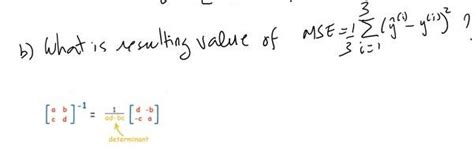 b) What is resulting value of MSE = 1/3 3∑i=1 (ŷ^(i) - y^(i))² ?
[a b c d]^-1 = 1/(ad-bc) [d -b -c a]
determinant